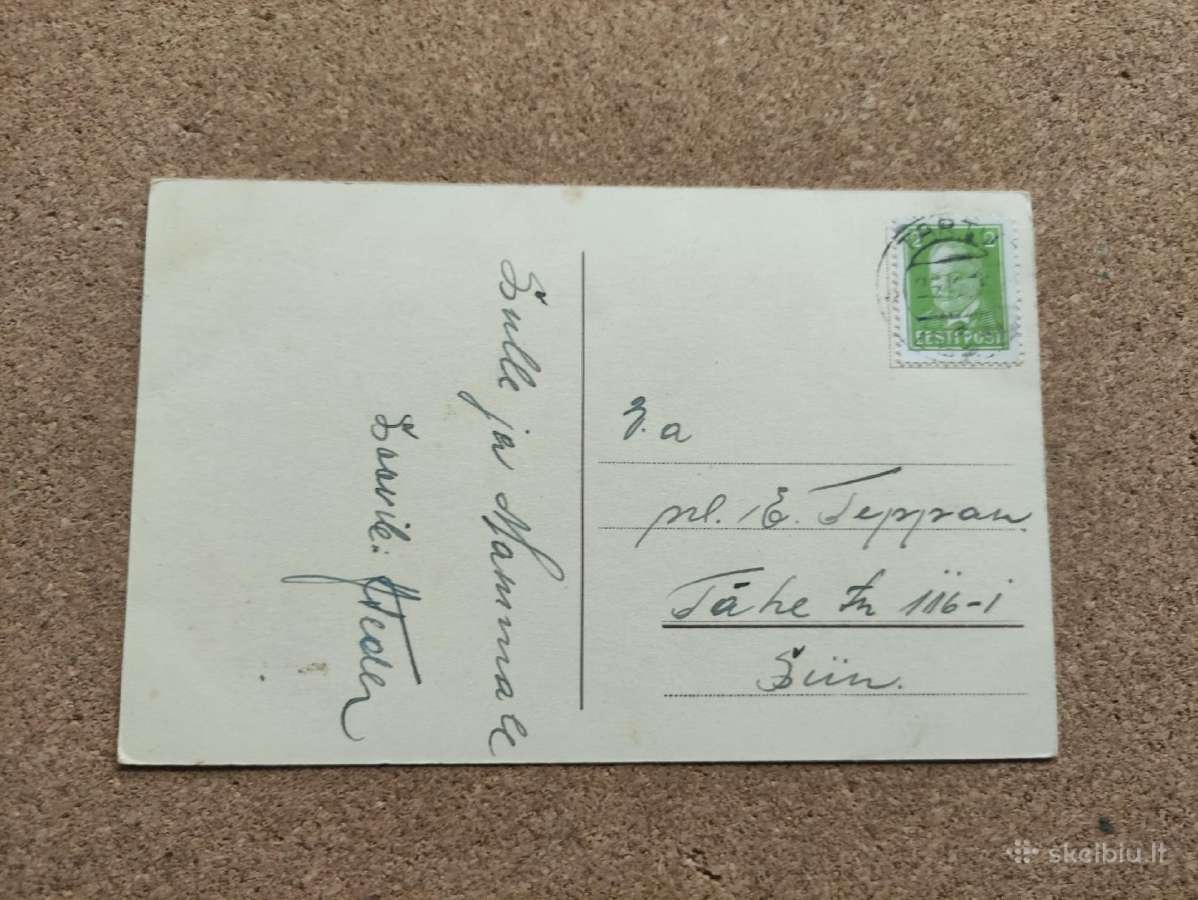 Sulle ja Mammale
Soovib:
TARTU
2 2
EESTI POST
V. a
prl. E. Teppan.
Tähe tn 116-1
Siin.
skelbiu.lt